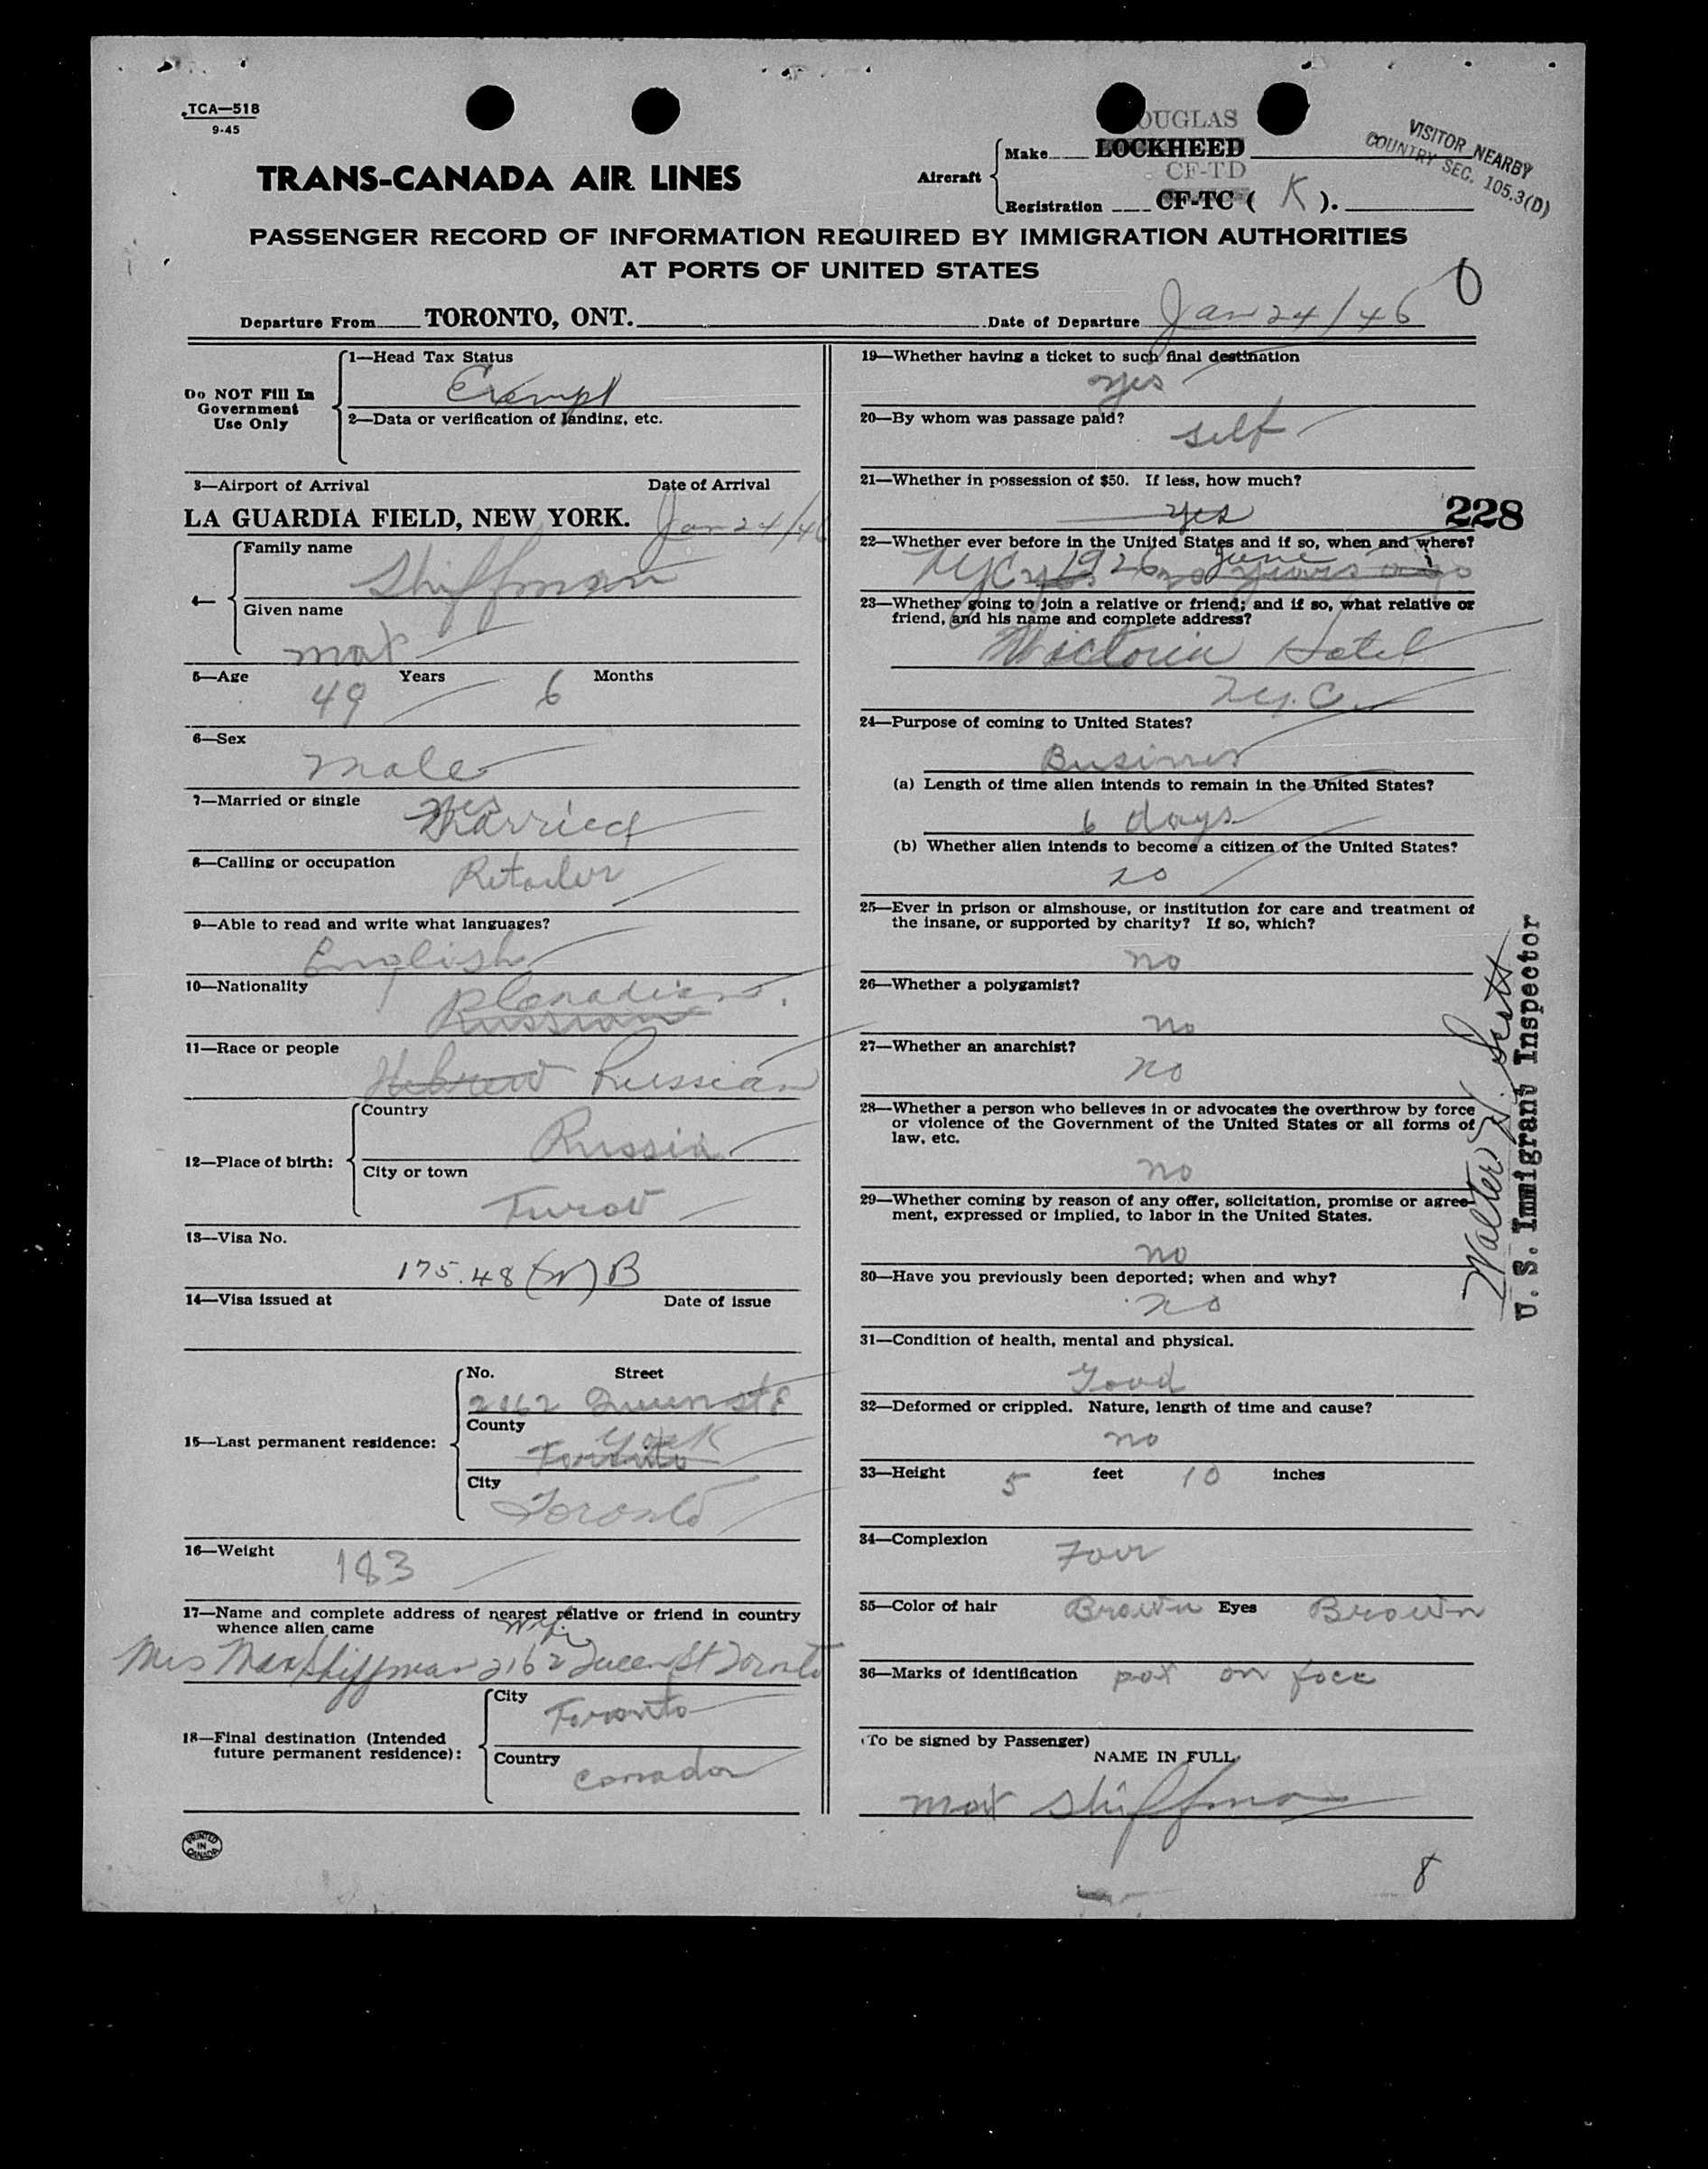 TCA—518
9-45
TRANS-CANADA AIR LINES
Aircraft
Make
DOUGLAS
LOCKHEED
CF-TD
Registration CF-TC ( K ).
VISITOR NEARBY
COUNTRY SEC. 105.3(D)
PASSENGER RECORD OF INFORMATION REQUIRED BY IMMIGRATION AUTHORITIES
AT PORTS OF UNITED STATES
Departure From TORONTO, ONT.
Date of Departure Jan 24/46
Do NOT Fill In
Government
Use Only
1—Head Tax Status
Exempt
2—Data or verification of landing, etc.
3—Airport of Arrival Date of Arrival
LA GUARDIA FIELD, NEW YORK. Jan 24/46
4—
Family name
Shiffman
Given name
Max
5—Age 49 Years 6 Months
6—Sex
Male
7—Married or single
yes
Married
8—Calling or occupation
Retailer
9—Able to read and write what languages?
English
10—Nationality
Canadian.
Russian
11—Race or people
Hebrew Russian
12—Place of birth:
Country
Russia
City or town
Turov
13—Visa No.
175.48 (W) B
14—Visa issued at Date of issue
15—Last permanent residence:
No. Street
2162 Queen St E
County
York
Toronto
City
Toronto
16—Weight
183
17—Name and complete address of nearest relative or friend in country
whence alien came
Wife
Mrs Max Shiffman 2162 Queen St Toronto
18—Final destination (Intended
future permanent residence):
City
Toronto
Country
Canada
PRINTED
IN
CANADA
19—Whether having a ticket to such final destination
yes
20—By whom was passage paid?
self
21—Whether in possession of $50. If less, how much?
yes
228
22—Whether ever before in the United States and if so, when and where?
NYC yes 1926 June 20 years ago
23—Whether going to join a relative or friend; and if so, what relative or
friend, and his name and complete address?
Victoria Hotel
N.Y.C.
24—Purpose of coming to United States?
Business
(a) Length of time alien intends to remain in the United States?
6 days
(b) Whether alien intends to become a citizen of the United States?
no
25—Ever in prison or almshouse, or institution for care and treatment of
the insane, or supported by charity? If so, which?
no
26—Whether a polygamist?
no
27—Whether an anarchist?
no
28—Whether a person who believes in or advocates the overthrow by force
or violence of the Government of the United States or all forms of
law, etc.
no
29—Whether coming by reason of any offer, solicitation, promise or agree-
ment, expressed or implied, to labor in the United States.
no
30—Have you previously been deported; when and why?
no
31—Condition of health, mental and physical.
Good
32—Deformed or crippled. Nature, length of time and cause?
no
33—Height 5 feet 10 inches
34—Complexion
Fair
35—Color of hair Brown Eyes Brown
36—Marks of identification
(To be signed by Passenger)
NAME IN FULL
Max Shiffman
8
Walter
U. S. Immigrant Inspector